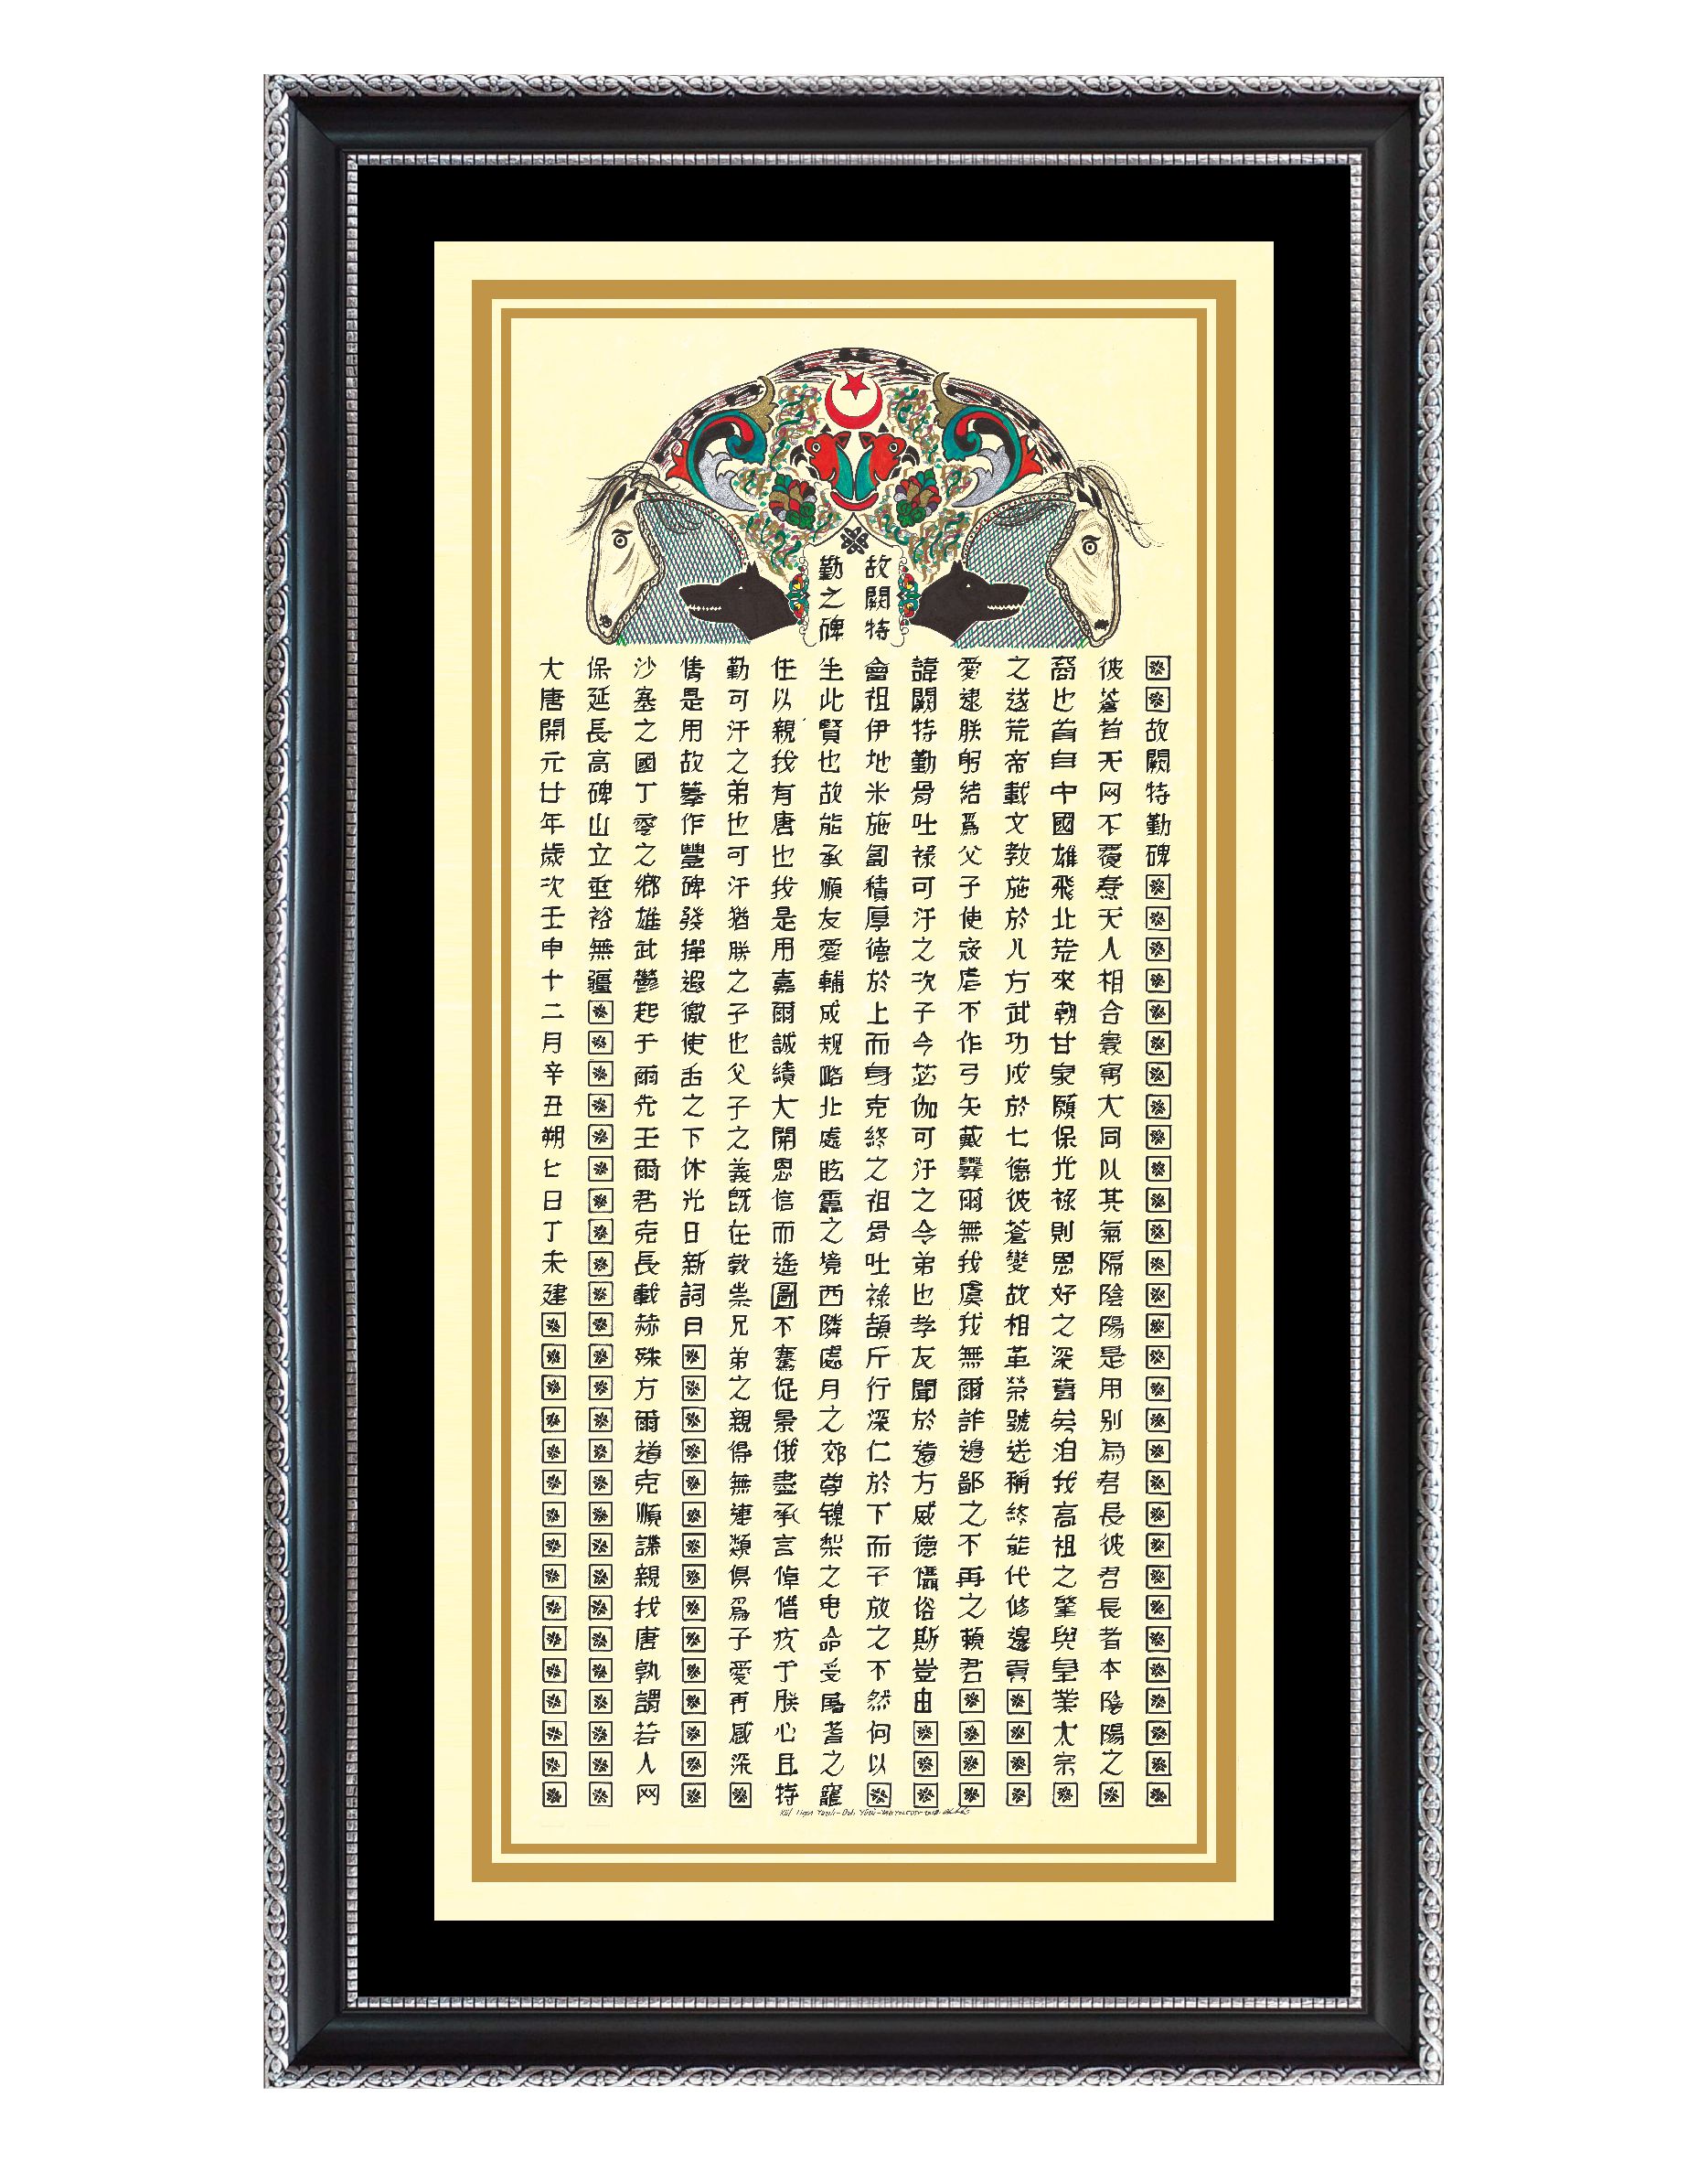 故闕特
勤之碑
故闕特勤碑
彼蒼者天网不覆燾天人相合寰寓大同以其氣隔陰陽是用别為君長彼君長者本陰陽之
裔也首自中國雄飛北荒來朝甘泉願保光祿則恩好之深舊矣洎我高祖之肇興皇業太宗
之遂荒帝載文教施於八方武功成於七德彼蒼變故相革榮號迭稱終能代修邊貢
愛逮朕躬結爲父子使寇虐不作弓矢載櫜爾無我虞我無爾詐邊鄙之不再之賴君
諱闕特勤骨吐祿可汗之次子今苾伽可汗之令弟也孝友聞於遠方威德懾俗斯豈由
會祖伊地米施匐積厚德於上而身克終之祖骨吐祿頡斤行深仁於下而子放之不然何以
生此賢也故能承順友愛輔成規略北處眩靁之境西隣處月之郊尊梨之屯命受屠耆之寵
任以親我有唐也我是用嘉爾誠績大開恩信而遙圖不騫促景俄盡承言悼惜疚于朕心且特
勤可汗之弟也可汗猶朕之子也父子之義既在敦崇兄弟之親得無連類俱爲子愛再感深
情是用故摹作豐碑發揮遐徼使舌之下休光日新詞曰
沙塞之國丁零之鄉雄武鬱起于爾先王爾君克長載赫殊方爾道克順謀親我唐孰謂若人网
保延長高碑山立垂裕無疆
大唐開元廿年歲次壬申十二月辛丑朔七日丁未建